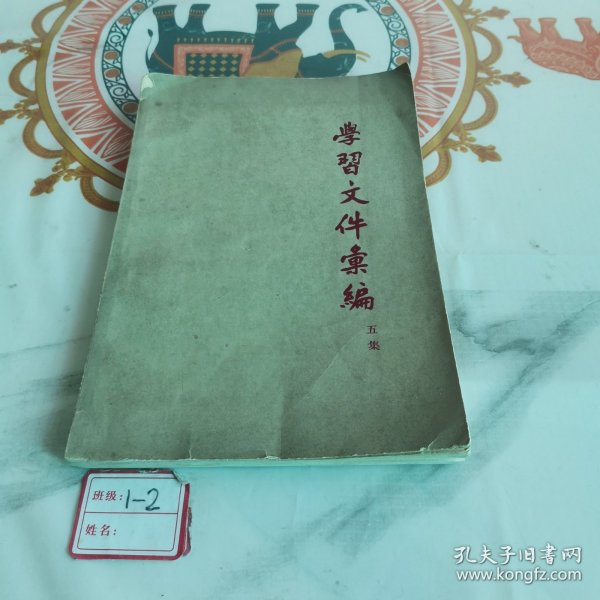 學習文件彙編
五集
班级：1-2
姓名：
孔夫子旧書网
www.kongfz.com